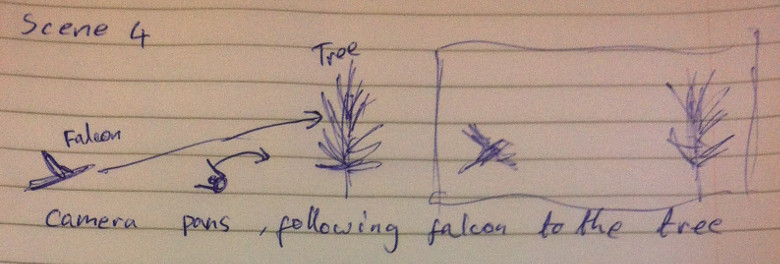 Scene 4
Tree
Falcon
Camera pans, following falcon to the tree